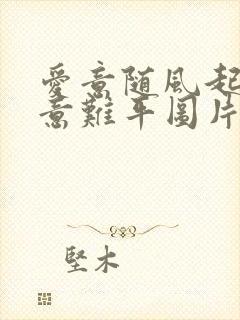 愛意随风起
意難平圖片
堅木